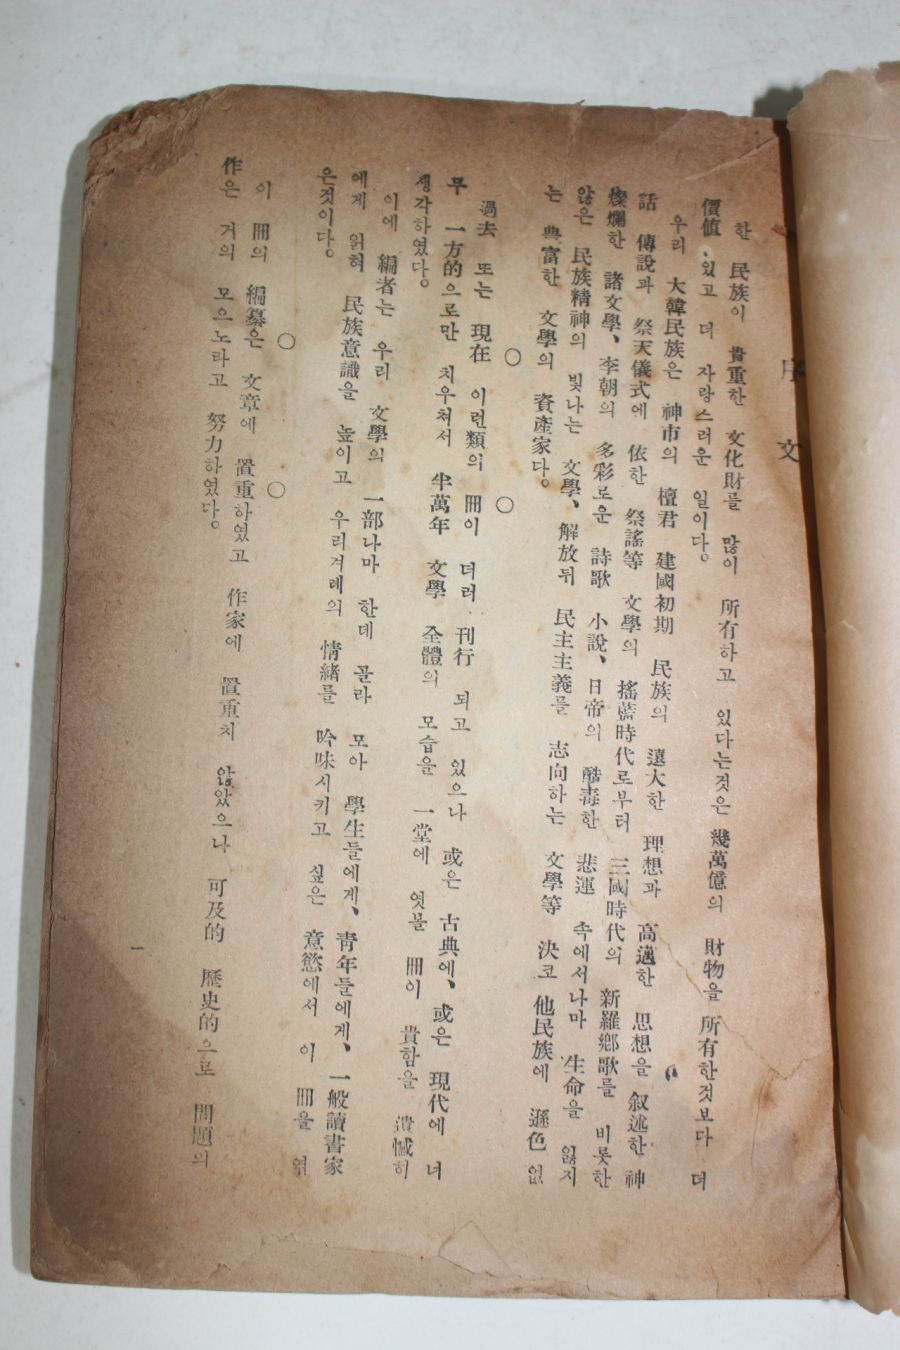 序文
한 民族이 貴重한 文化財를 많이 所有하고 있다는것은 幾萬億의 財物을 所有한것보다 더
價値 있고 더 자랑스러운 일이다。
우리 大韓民族은 神市의 檀君 建國初期 民族의 遠大한 理想과 高邁한 思想을 叙述한 神
話 傳說과 祭天儀式에 依한 祭謠等 文學의 搖藍時代로부터 三國時代의 新羅鄕歌를 비롯한
燦爛한 諸文學、李朝의 多彩로운 詩歌 小說、日帝의 酷毒한 悲運 속에서나마 生命을 잃지
않은 民族精神의 빛나는 文學、解放뒤 民主主義를 志向하는 文學等 決코 他民族에 遜色 없
는 典富한 文學의 資產家다。
○ ○
過去 또는 現在 이런類의 冊이 더러 刊行 되고 있으나 或은 古典에、或은 現代에 너
무 一方的으로만 치우쳐서 半萬年 文學 全體의 모습을 一堂에 엿볼 冊이 貴함을 遺憾히
생각하였다。
이에 編者는 우리 文學의 一部나마 한데 골라 모아 學生들에게、靑年들에게、一般讀書家
에게 읽혀 民族意識을 높이고 우리겨레의 情緖를 吟味시키고 싶은 意慾에서 이 冊을 엮
은것이다。
○ ○
이 冊의 編纂은 文章에 置重하였고 作家에 置重치 않았으나 可及的 歷史的으로 問題의
作은 거의 모으노라고 努力하였다。
一